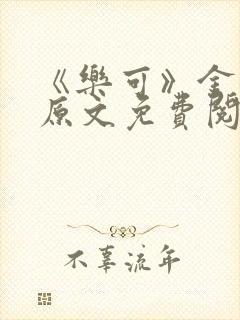 《樂可》金
原文免費閱
不辜流年